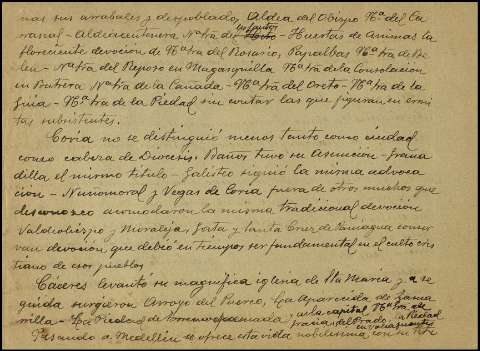 nas sus arrabales y despoblado, Aldea del Obispo Nª del Ca
rranal - Aldeacentenera Nª trª del infantes - Huertas de Animas la
floreciente devoción de Nª trª del Rosario, Papalbas Nª trª de Be
len - Nª trª del Reposo en Magasquilla Nª trª de la Consolación
en Butrera Nª trª de la Cañada - Nª trª del Oreto - Nª trª de la
Guia - Nª trª de la Piedad sin contar las que figuran en ermi
tas subsistentes.
Coria no se distinguió menos tanto como ciudad
como cabeza de Diocesis. Baños tuvo su Asunción - Grana
dilla el mismo titulo - Galisteo siguió la misma advoca
ción - Nuñomoral y Vegas de Coria fuera de otros muchos que
desconozco acomodaron la misma tradicional devoción
Valdeobispo y Moraleja, Gata y Santa Cruz de Paniagua conser
van devoción que debió en tiempos ser fundamental en el culto cris
tiano de esos pueblos.
Cáceres levantó su magnifica iglesia de Sta María y a se
guida surgieron Arroyo del Puerco, La Aparecida de Zarza
milla - La Piedad de y a la capital Nª trª de
del Prado, a Piedad
en varias puentes
Pasando a Medellin se ofrece esta vida nobilísima con su